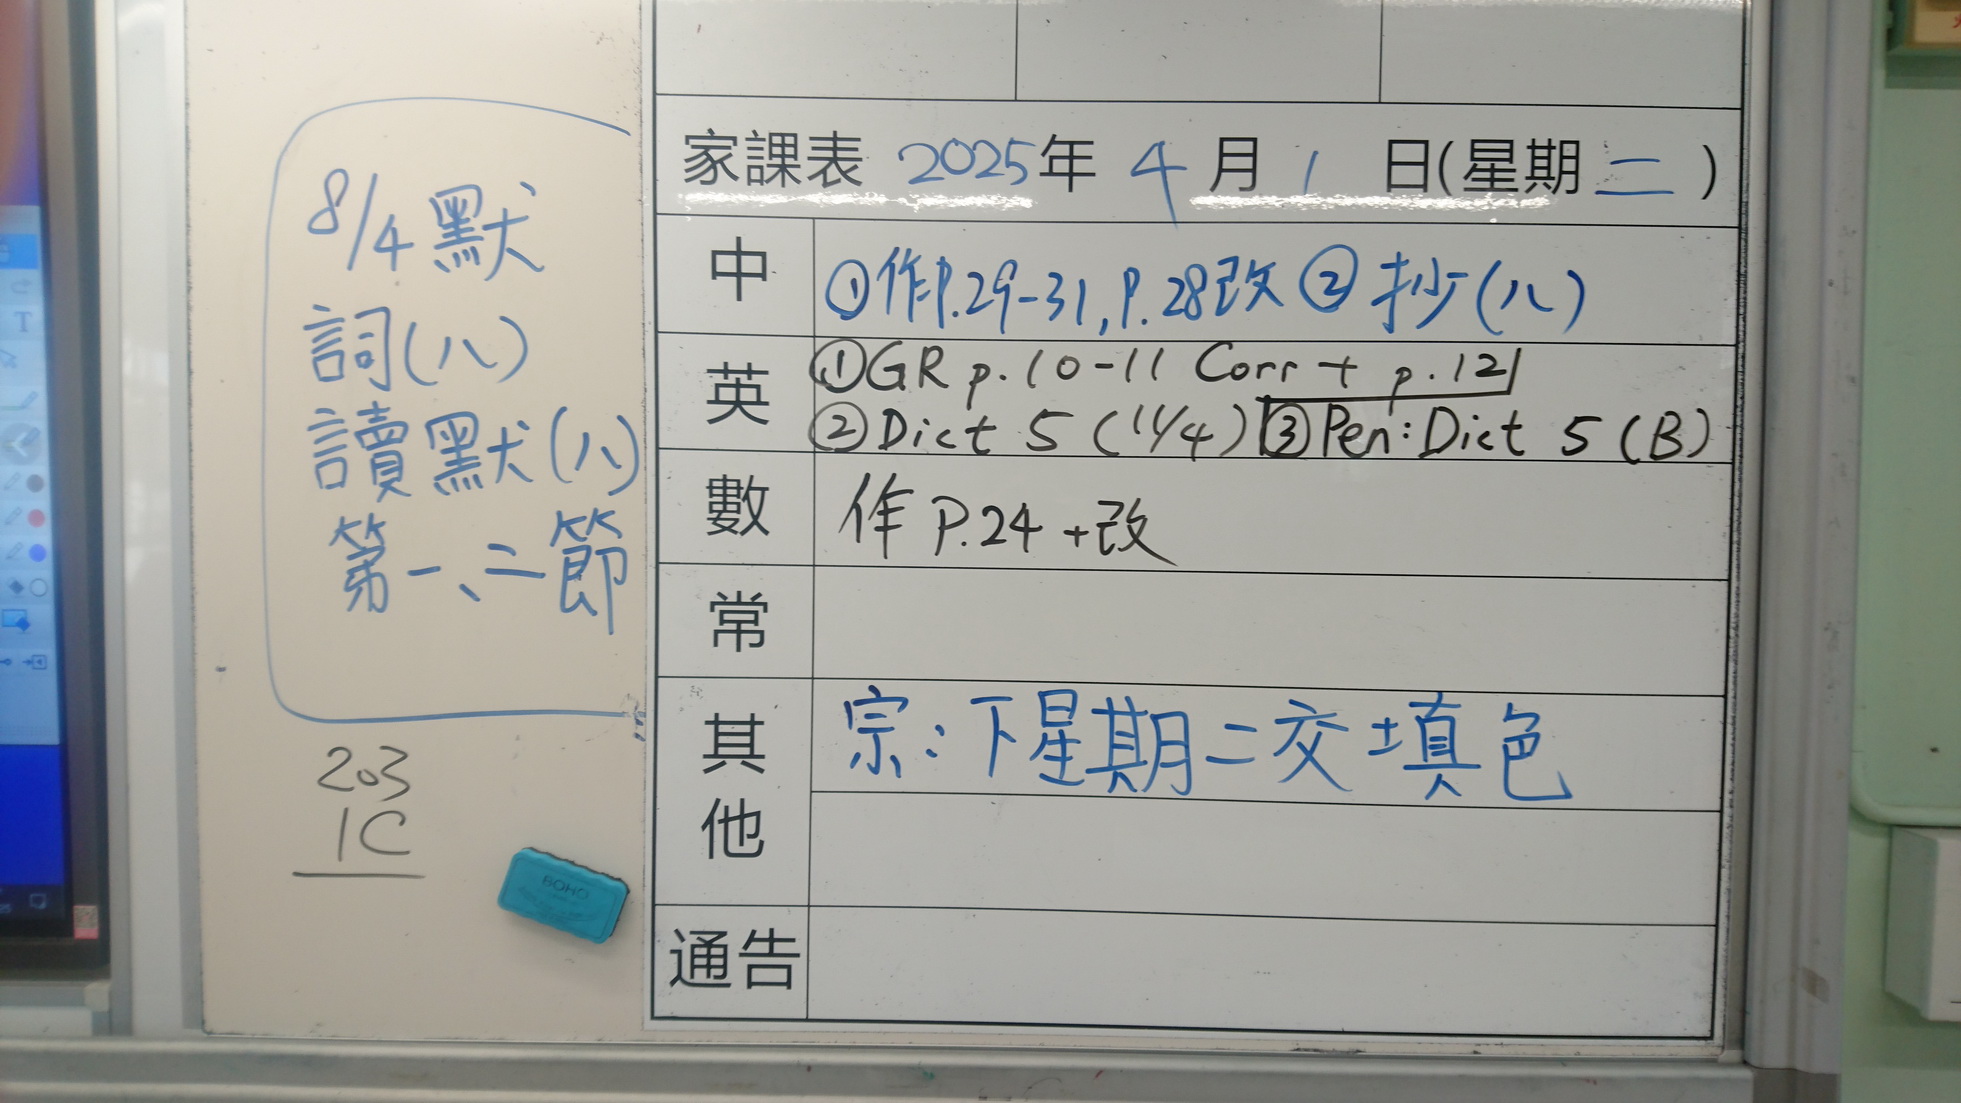 8/4默
詞(八)
讀默(八)
第一、二節
203
1C
BOHO
家課表 2025年 4月1日(星期二)
中 ①作P.29-31, P.28改 ② 抄(八)
英 ①GR p.10-11 Corr + p.12
②Dict 5 (11/4) ③Pen: Dict 5 (B)
數 作 P.24 +改
常
其他 宗:下星期二交填色
通告